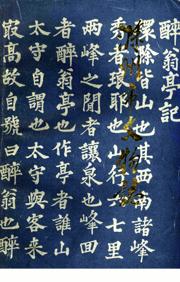 醉翁亭記
環滁皆山也其西南諸峰
滁州市文物志
秀者琅耶也山行六七里
兩峰之間者讓泉也峰回
者醉翁亭也作亭者誰山
太守自謂也太守與客來
㝡高故自號曰醉翁也醉